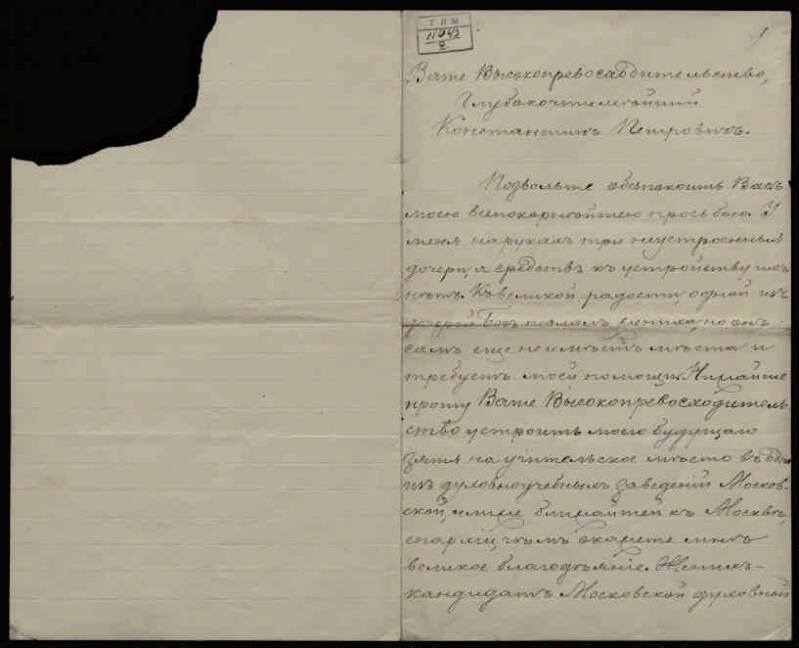 ГЛМ
Ваше Высокопревосходительство,
Глубокочтимѣйшій
Константинъ Петровичъ.
Позвольте обезпокоить Васъ
моею всепокорнѣйшею просьбою. У
меня на рукахъ три неустроенныя
дочери, а средствъ къ устройству ихъ
нѣтъ. Къ великой радости, одной изъ
дочерей Богъ послалъ жениха, но онъ
самъ еще не имѣетъ мѣста и
требуетъ моей помощи. Нижайше
прошу Ваше Высокопревосходитель
ство устроить моего будущаго
зятя на учительское мѣсто въ
изъ духовноучебныхъ заведеній Москов-
ской, или ближайшей къ Москвѣ,
епархій, чѣмъ окажете мнѣ
великое благодѣяніе. Женихъ-
кандидатъ Московской духовной